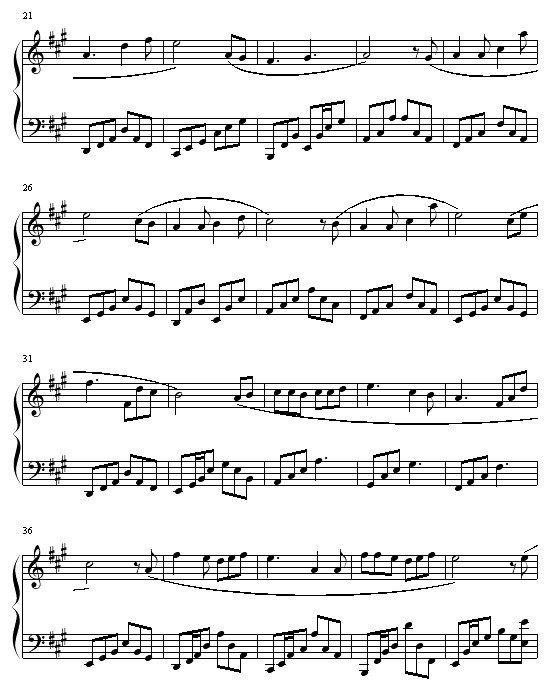 21
26
31
36